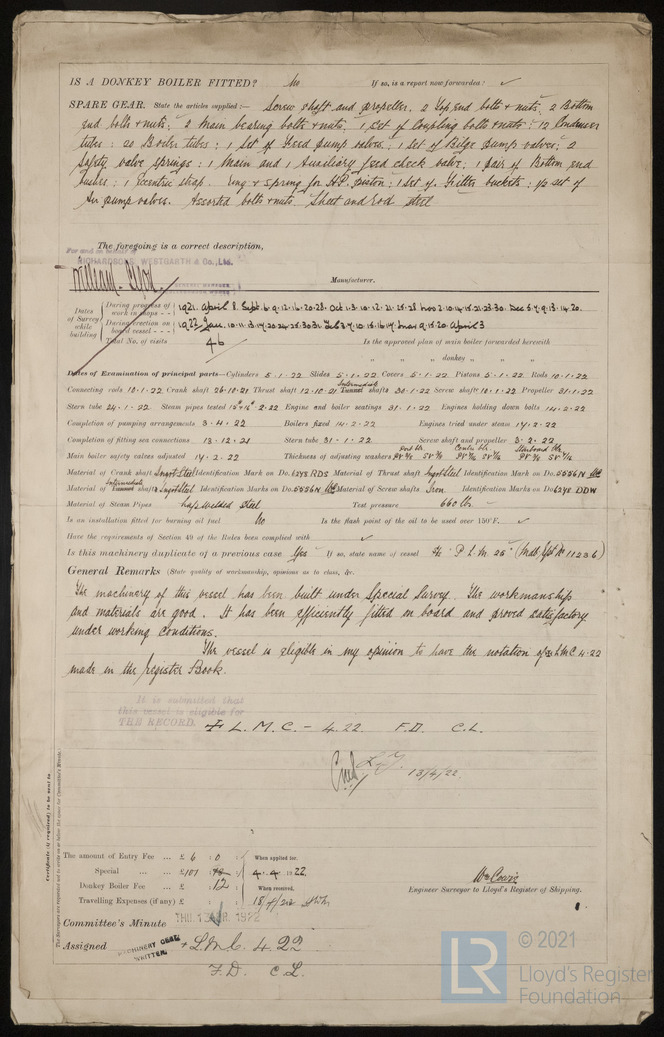 IS A DONKEY BOILER FITTED? No If so, is a report now forwarded: ✓
SPARE GEAR. State the articles supplied:— Screw shaft and propeller. 2 Top end bolts + nuts. 2 Bottom
end bolts + nuts. 2 Main bearing bolts + nuts. 1 Set of Coupling bolts + nuts: 12 Condenser
tubes: 20 Boiler tubes: 1 Set of Feed pump valves: 1 Set of Bilge pump valves: 2
Safety valve springs: 1 Main and 1 Auxiliary feed check valve: 1 pair of Bottom end
bushes: 1 Eccentric strap. Ring + spring for H.P. piston: 1 Set of Filter buckets: ½ set of
Air pump valves. Assorted bolts + nuts. Sheet and rod steel
The foregoing is a correct description,
For and on behalf of
RICHARDSONS, WESTGARTH & Co., Ltd.
Manufacturer.
Dates of Survey while building
During progress of work in shops - - 1921. April 8. Sept. 6. 9. 12. 16. 20. 28. Oct. 1. 3. 10. 12. 21. 25. 28 Nov 2. 10. 14. 15. 21. 23. 30. Dec 5. 7. 9. 13. 14. 20.
During erection on board vessel - - - 1922 Jan. 10. 11. 13. 17. 20. 24. 25. 30. 31. Feb 3. 7. 10. 15. 16. 17. Mar 9. 15. 20. April 3
Total No. of visits 46 Is the approved plan of main boiler forwarded herewith
" " " donkey " " "
Dates of Examination of principal parts—Cylinders 5.1.22 Slides 5.1.22 Covers 5.1.22 Pistons 5.1.22 Rods 10.1.22
Connecting rods 10.1.22 Crank shaft 26.10.21 Thrust shaft 12.10.21 Intermediate Tunnel shafts 30.1.22 Screw shaft 10.1.22 Propeller 31.1.22
Stern tube 24.1.22 Steam pipes tested 15th & 16th.2.22 Engine and boiler seatings 31.1.22 Engines holding down bolts 14.2.22
Completion of pumping arrangements 3.4.22 Boilers fixed 14.2.22 Engines tried under steam 17.2.22
Completion of fitting sea connections 13.12.21 Stern tube 31.1.22 Screw shaft and propeller 3.2.22
Main boiler safety valves adjusted 17.2.22 Thickness of adjusting washers
Material of Crank shaft Ingot Steel Identification Mark on Do. 6248 RDS Material of Thrust shaft Ingot Steel Identification Mark on Do. 5556N
Material of Intermediate Tunnel shafts Ingot Steel Identification Marks on Do. 5556N Material of Screw shafts Iron Identification Marks on Do. 6248 DDW
Material of Steam Pipes Lap welded steel Test pressure 660 lbs.
Is an installation fitted for burning oil fuel No Is the flash point of the oil to be used over 150°F. ✓
Have the requirements of Section 49 of the Rules been complied with ✓
Is this machinery duplicate of a previous case Yes If so, state name of vessel No "P.L.M. 25" (Mdb. Rpt. No 11236)
General Remarks (State quality of workmanship, opinions as to class, &c.
The machinery of this vessel has been built under Special Survey. The workmanship
and materials are good. It has been efficiently fitted on board and proved satisfactory
under working conditions.
The vessel is eligible in my opinion to have the notation of + LMC 4.22
made in the Register Book.
It is submitted that
this vessel is eligible for
THE RECORD. + L.M.C. – 4.22 F.D. C.L.
13/4/22.
Certificate (if required) to be sent to
The Surveyors are requested not to write on or below the space for Committee's Minute.
The amount of Entry Fee ... £ 6 : 0 : When applied for,
Special ... ... £ 107 : 4.4.1922.
Donkey Boiler Fee ... £ : 12 : When received,
Travelling Expenses (if any) £ : :
Wm Cowie
Engineer Surveyor to Lloyd's Register of Shipping.
Committee's Minute THU. 13 APR. 1922
Assigned + L.M.C. 4.22
F.D. C.L.
MACHINERY CERT.
WRITTEN.
LR
© 2021
Lloyd's Register
Foundation